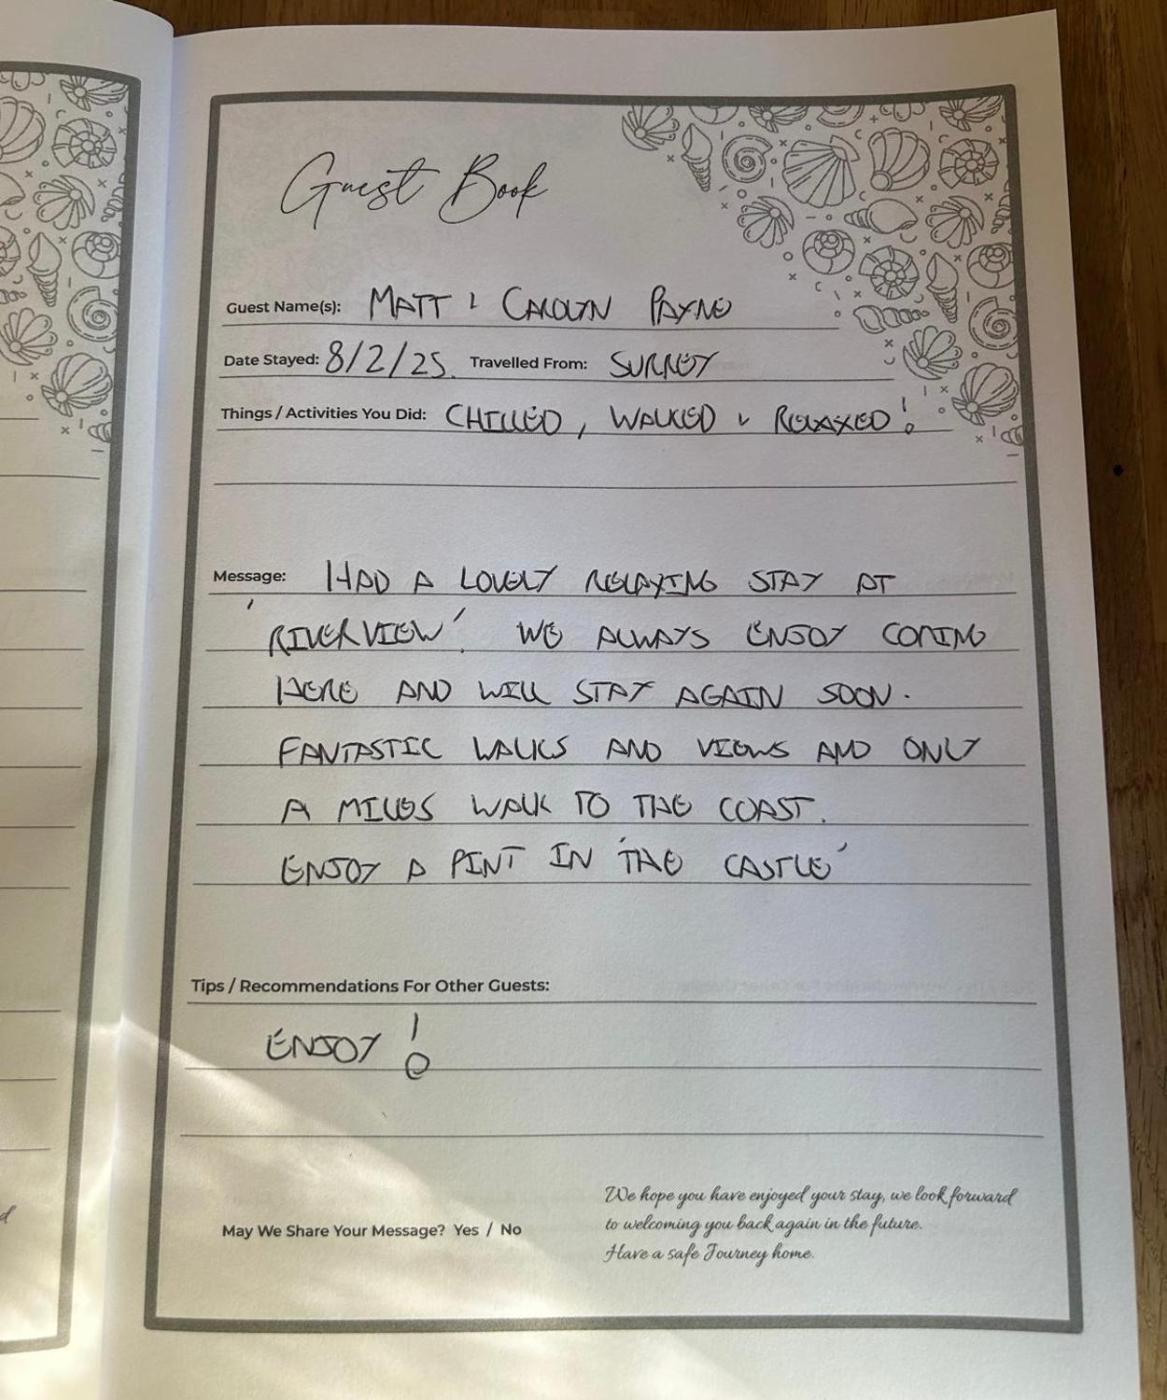 Guest Book
Guest Name(s): MATT & CAROLYN PAYNE
Date Stayed: 8/2/25. Travelled From: SURREY
Things / Activities You Did: CHILLED, WALKED & RELAXED!
Message: HAD A LOVELY RELAXING STAY AT
'RIVERVIEW'. WE ALWAYS ENJOY COMING
HERE AND WILL STAY AGAIN SOON.
FANTASTIC WALKS AND VIEWS AND ONLY
A MILES WALK TO THE COAST.
ENJOY A PINT IN 'THE CASTLE'
Tips / Recommendations For Other Guests:
ENJOY!
We hope you have enjoyed your stay, we look forward
to welcoming you back again in the future.
Have a safe Journey home.
May We Share Your Message? Yes / No